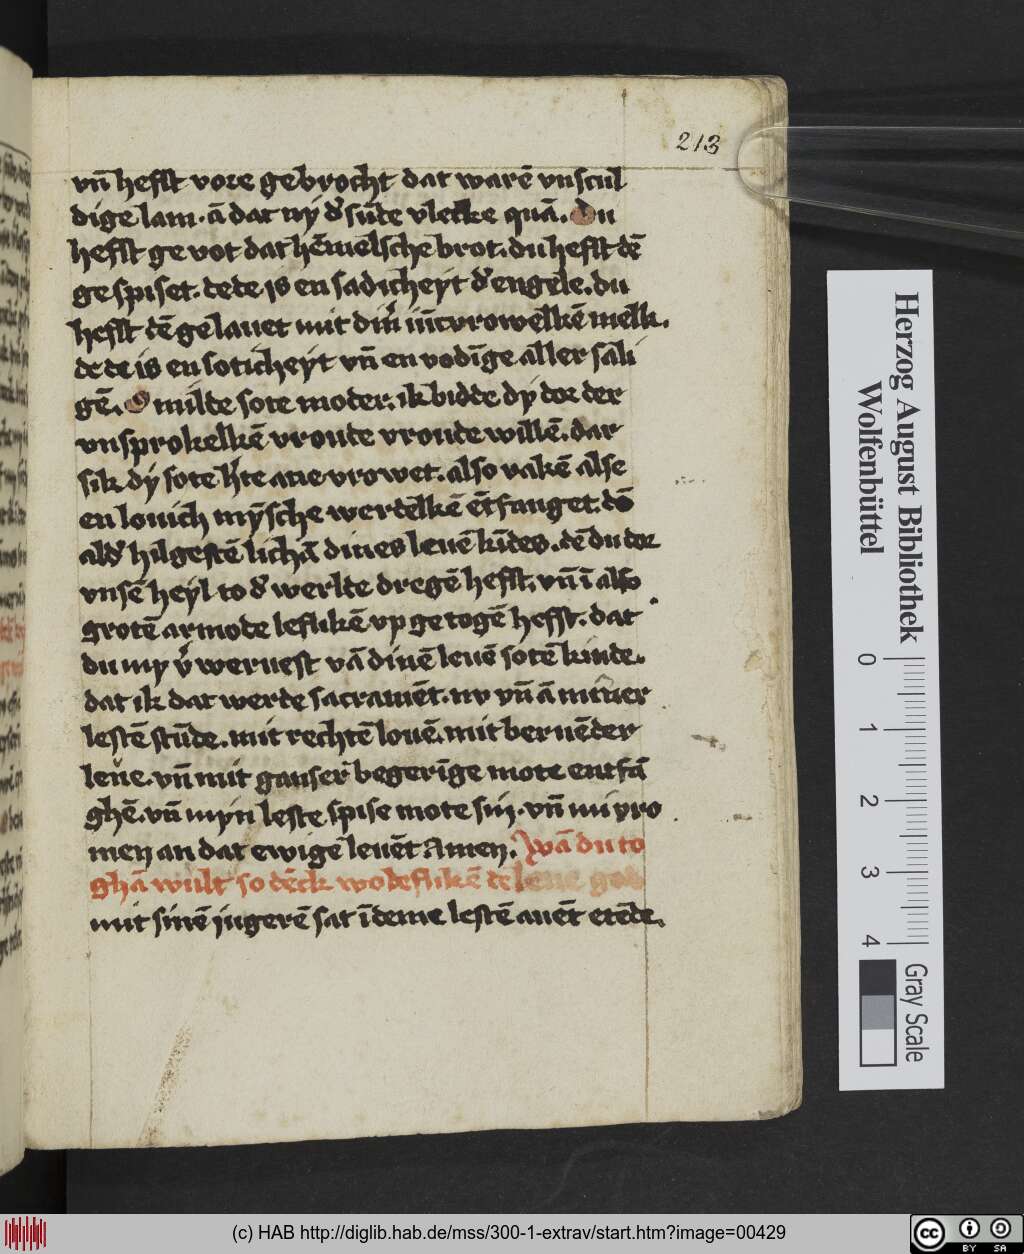 213
vn̄ hefst vore gebrocht dat warē vnscul
dige lam · ā dat nỹ d' sūde vlecke quā. Du
hefst ge vot dat hēmelsche brot. du hefst dē
ge spiset. de de is en sadicheyt d' engele. du
hefst dē gelauet mit diner iūcvrowelkē melk.
de de is en soticheyt vn̄ en vodīge aller sali
gē. O milde sote moder. ik bidde dy dor der
vnsprokelkē vroude vroude willē. dar
sik dȳ sote h'te ane vrowet. also vakē alse
en louich mȳsche werdelkē ētfanget. dē
ald' hilgestē lichā dines leuē kīdes. dē du dor
vnsē heyl to d' werlde dregē hefst. vn̄ ī also
grotē armode leflikē vp ge togē hefst. dat
du my v'weruest vā dinē leuē sotē kinde.
dat ik dat werde sacramēt. nv vn̄ ā miner
lestē stūde. mit rechtē louē. mit bernēder
leue. vn̄ mit ganser begerīge mote entfā
ghē. vn̄ myn leste spise mote sin. vn̄ mi vro
men an dat ewige leuēt Amen. Wā du to
ghā wult so dēck wo deflikē de leue god
mit sinē iugerē sat ī deme lestē auēt etēde.
Herzog August Bibliothek
Wolfenbüttel
0 1 2 3 4
Gray Scale
(c) HAB http://diglib.hab.de/mss/300-1-extrav/start.htm?image=00429
cc BY SA